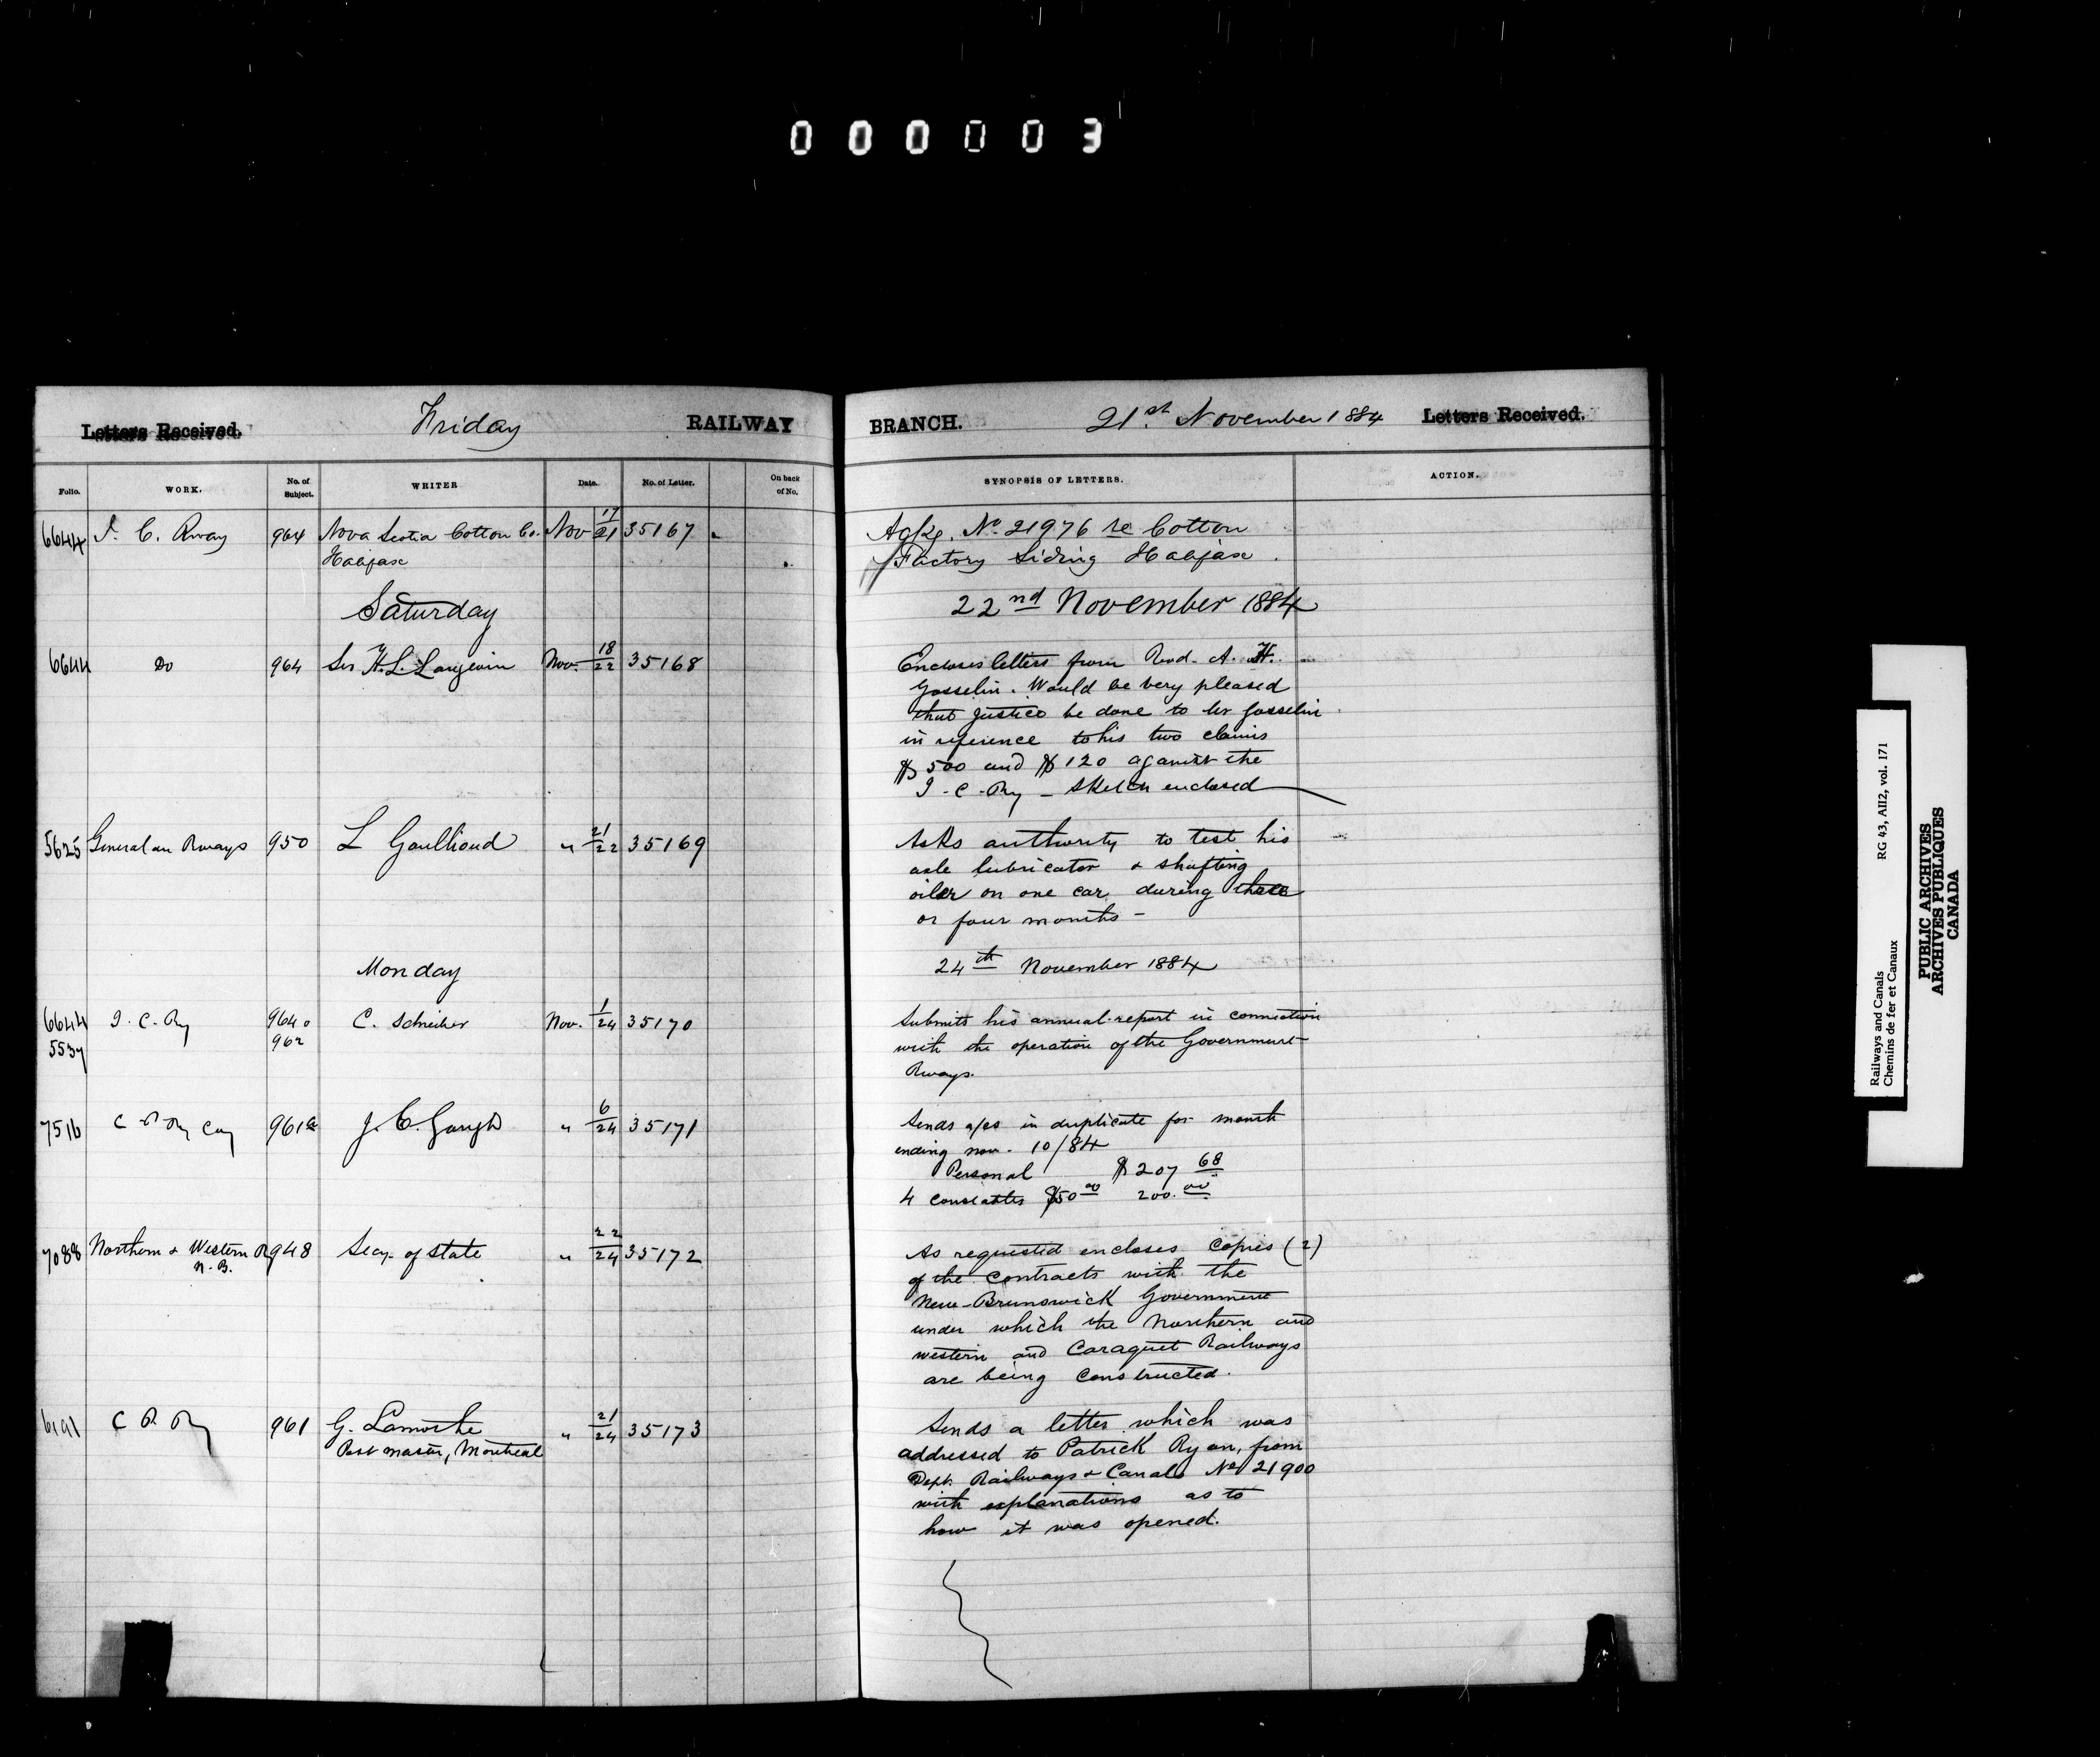 000003
Letters Received. Friday RAILWAY BRANCH. 21st November 1884 Letters Received.
Folio. WORK. No. of Subject. WRITER Date. No. of Letter. On back of No. SYNOPSIS OF LETTERS. ACTION.
6644 I. C. Rway 964 Nova Scotia Cotton Co. Nov 17/21 35167 Ackg. No. 21976 re Cotton
Halifax Factory Siding Halifax.
Saturday 22nd November 1884
6644 Do 964 Sir H. L. Langevin Nov. 18/22 35168 Encloses letters from Revd. A. H.
Gosselin. Would be very pleased
that justice be done to Mr Gosselin
in reference to his two claims
$500 and $120 against the
I. C. Ry - Sketch enclosed
5625 General on Rways 950 L Gaullioud " 21/22 35169 Asks authority to test his
axle lubricator & shafting
oiler on one car during three
or four months -
Monday 24th November 1884
6644 I. C. Ry 964 C. Schreiber Nov. 1/24 35170 Submits his annual report in connection
5534 962 with the operation of the Government
Rways.
7516 C P Ry Coy 961 J. C. Gough " 6/24 35171 Sends a/cs in duplicate for month
ending nov. 10/84
Personal $207 68
4 Constables $50 00 200.00
7088 Northern & Western Ry 948 Secy. of State " 22/24 35172 As requested encloses copies (2)
N. B. of the contracts with the
New-Brunswick Government
under which the Northern and
western and Caraquet Railways
are being constructed.
6191 C P Ry 961 G. Lamothe " 21/24 35173 Sends a letter which was
Post master, Montreal addressed to Patrick Ryan, from
Dept. Railways & Canals No 21900
with explanations as to
how it was opened.
Railways and Canals RG 43, AII2, vol. 171
Chemins de fer et Canaux
PUBLIC ARCHIVES
ARCHIVES PUBLIQUES
CANADA